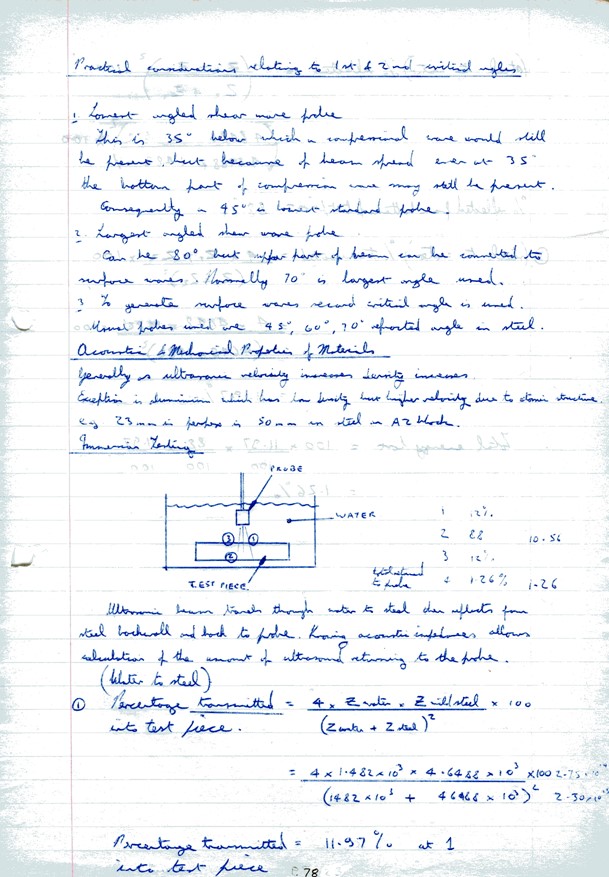 Practical considerations relating to 1st & 2nd critical angles
1. Lowest angled shear wave probe
This is 35° below which a compressional wave would still
be present, but because of beam spread even at 35°
the bottom part of compression wave may still be present.
Consequently a 45° is lowest standard probe.
2. Largest angled shear wave probe
Can be 80° but upper part of beam can be converted to
surface waves. Normally 70° is largest angle used.
3 To generate surface waves second critical angle is used.
Usual probes used are 45°, 60°, 70° refracted angle in steel.
Acoustic & Mechanical Properties of Materials
Generally as ultrasonic velocity increases density increases.
Exception is aluminium which has low density but higher velocity due to atomic structure.
e.g 23mm in perspex is 50mm in steel in A2 block.
Immersion Testing
PROBE
WATER
③ ①
②
TEST PIECE
1 12%
2 88 10.56
3 12%
total returned
to probe 4 1.26% 1.26
Ultrasonic beam travels through water to steel then reflects from
steel backwall and back to probe. Knowing acoustic impedances allows
calculation of the amount of ultrasound returning to the probe.
(Water to steel)
① Percentage transmitted = 4 x Z water x Z mild steel x 100
into test piece. (Z water + Z steel)²
= 4 x 1.482 x 10³ x 4.6488 x 10³ x100 2.75
(1482 x 10³ + 46468 x 10³)² 2.30
Percentage transmitted = 11.97% at 1
into test piece
78